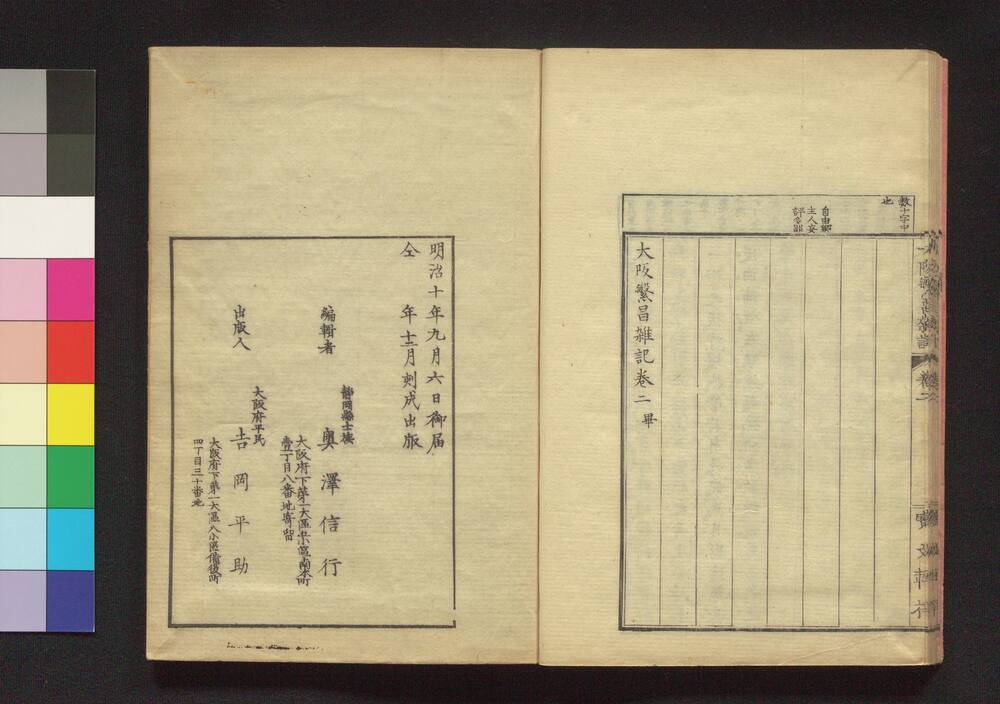 數十字中
也
自由郷
主人妄
評妄批
大阪繁昌雜記卷二 畢
明治十年九月六日御届
仝 年十二月刻成出版
編輯者
靜岡縣士族
奧澤信行
大阪府下第一大區
壹丁目八番地寄留
出版人
大阪府平民
吉岡平助
大阪府下第一大區八小區備後町
四丁目三十番地